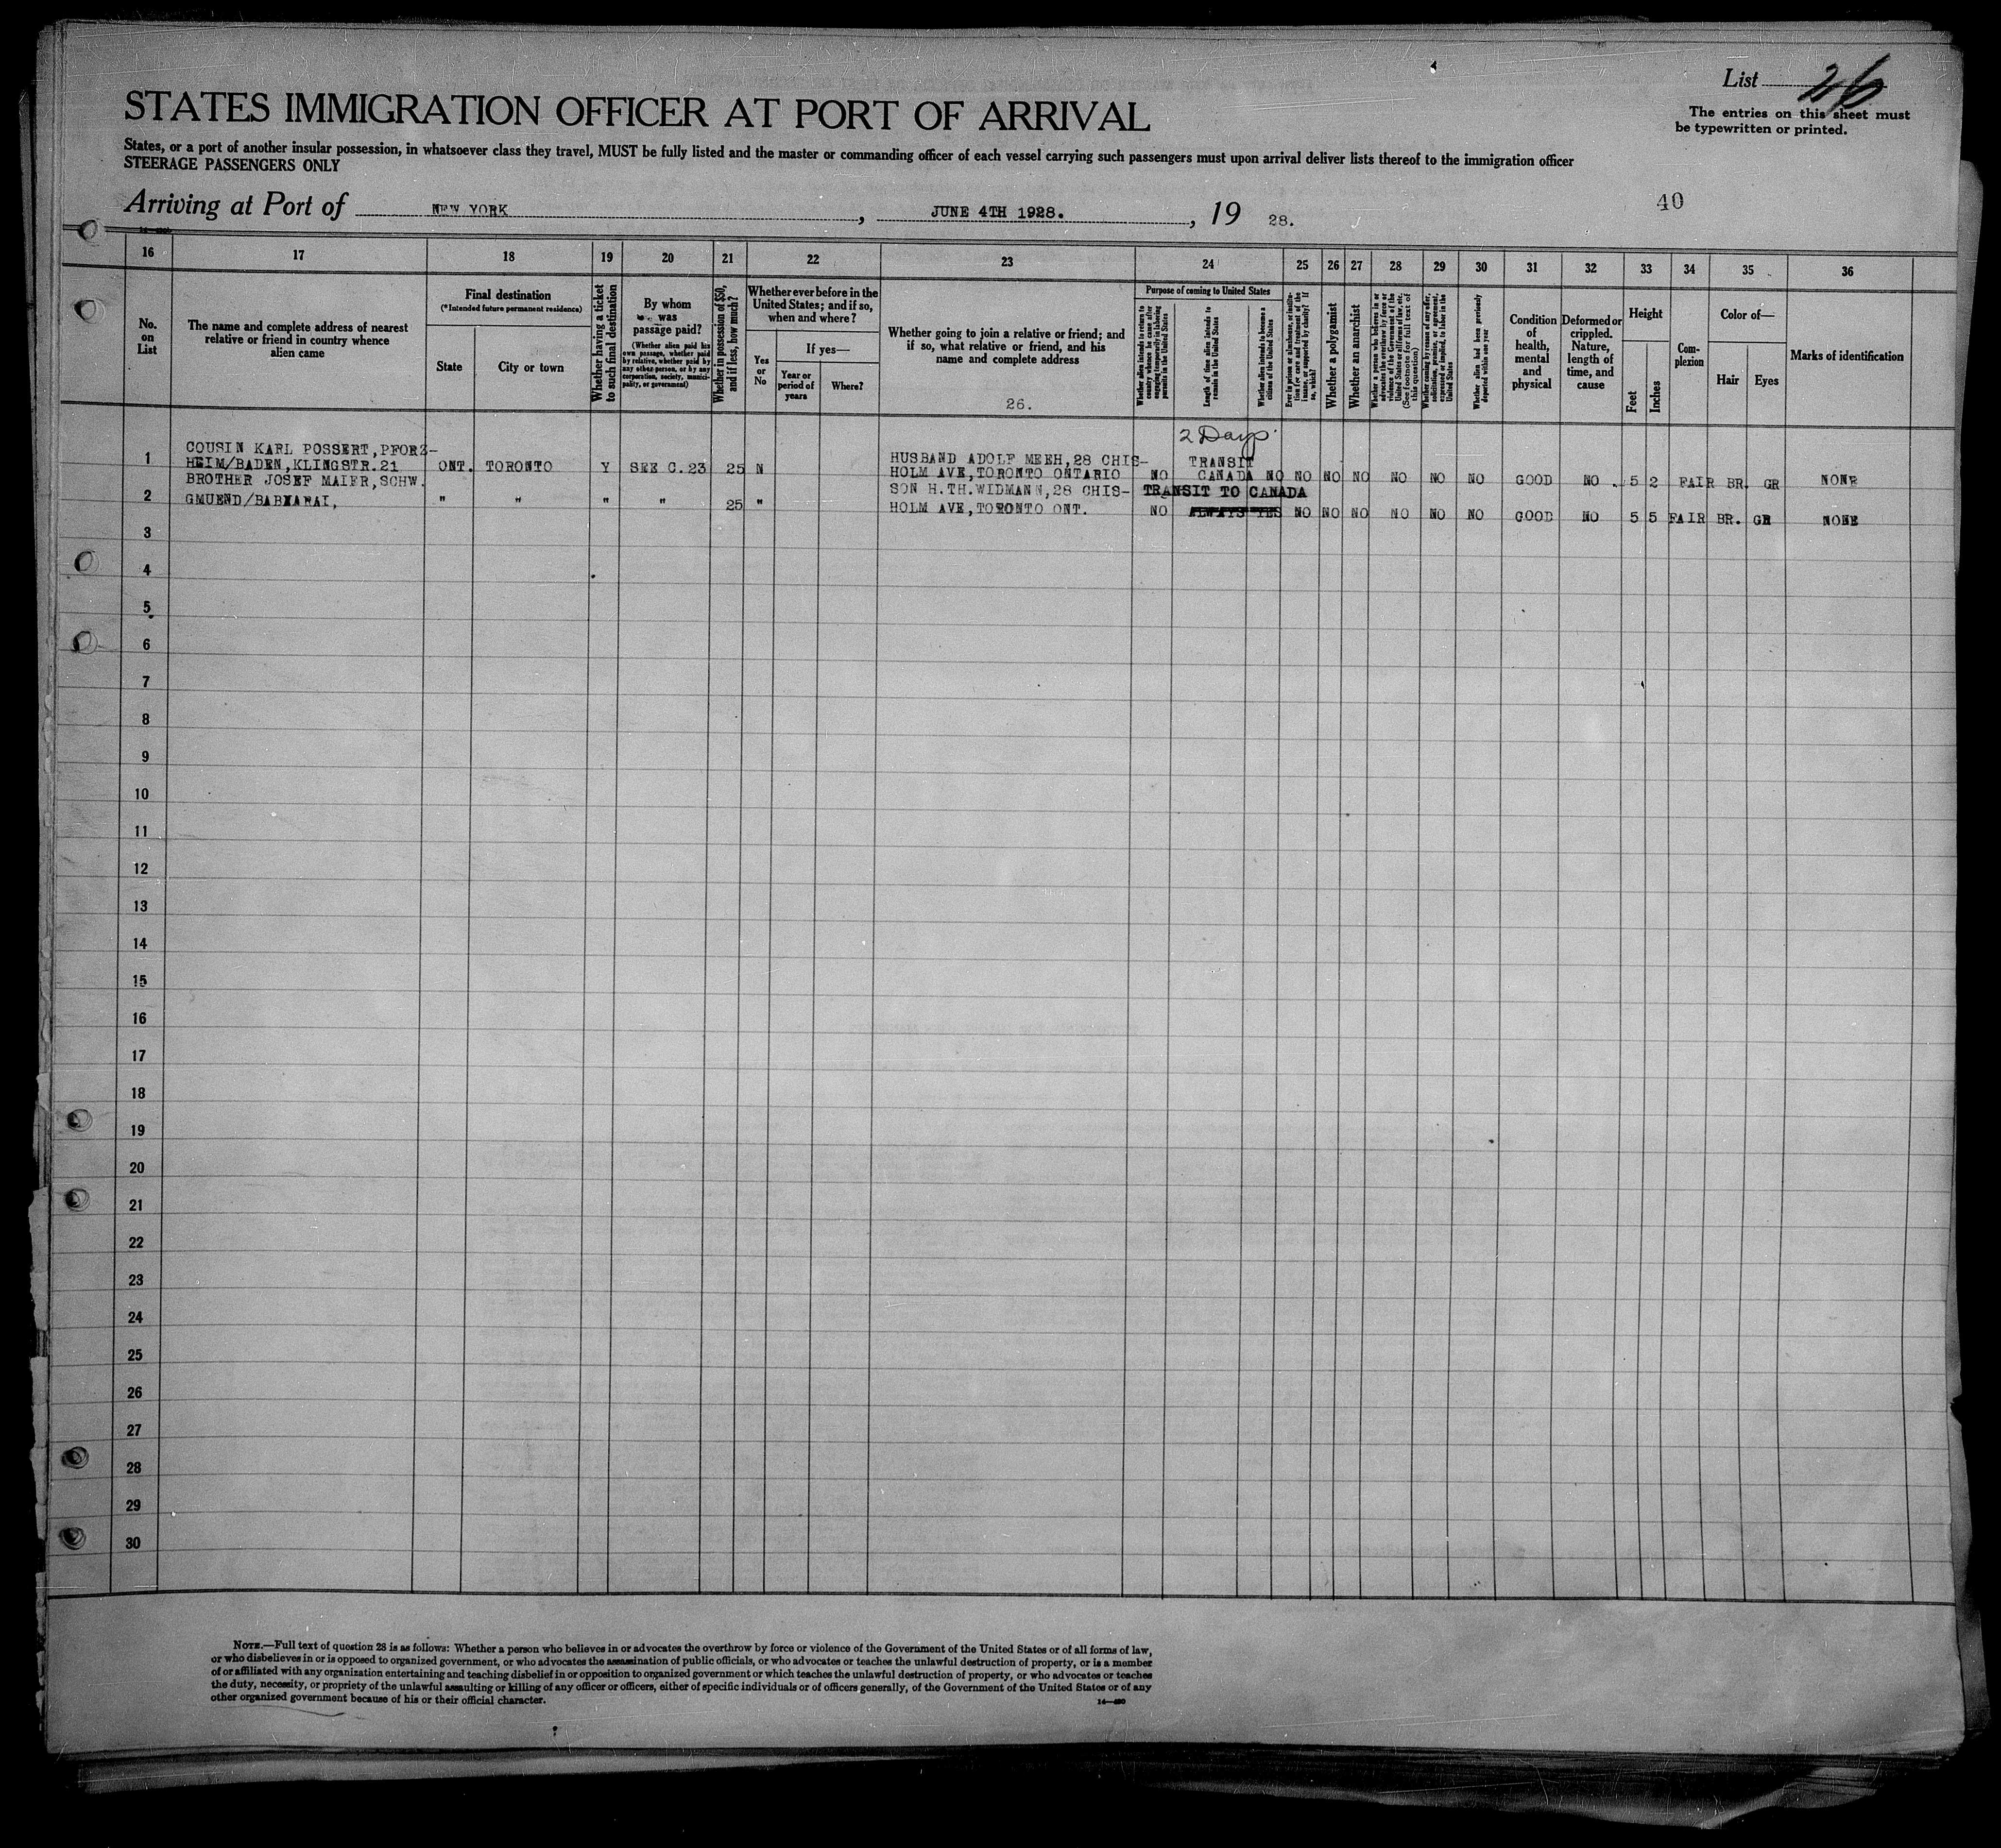 List 26
The entries on this sheet must
be typewritten or printed.
STATES IMMIGRATION OFFICER AT PORT OF ARRIVAL
States, or a port of another insular possession, in whatsoever class they travel, MUST be fully listed and the master or commanding officer of each vessel carrying such passengers must upon arrival deliver lists thereof to the immigration officer
STEERAGE PASSENGERS ONLY
Arriving at Port of NEW YORK, JUNE 4TH 1928., 19 28.
40
16 17 18 19 20 21 22 23 24 25 26 27 28 29 30 31 32 33 34 35 36
No. on List
The name and complete address of nearest relative or friend in country whence alien came
Final destination
(*Intended future permanent residence)
State
City or town
Whether having a ticket to such final destination
By whom was passage paid?
(Whether alien paid his own passage, whether paid by relative, whether paid by any other person, or by any corporation, society, municipality, or government)
Whether in possession of $50, and if less, how much?
Whether ever before in the United States; and if so, when and where?
Yes or No
If yes—
Year or period of years
Where?
Whether going to join a relative or friend; and if so, what relative or friend, and his name and complete address
26.
Purpose of coming to United States
Whether alien intends to return to country whence he came after engaging temporarily in laboring pursuits in the United States
Length of time alien intends to remain in the United States
Whether alien intends to become a citizen of the United States
Ever in prison or almshouse, or institution for care and treatment of the insane, or supported by charity? If so, which?
Whether a polygamist
Whether an anarchist
Whether a person who believes in or advocates the overthrow by force or violence of the Government of the United States or all forms of law, etc. (See footnote for full text of this question)
Whether coming by reason of any offer, solicitation, promise, or agreement, expressed or implied, to labor in the United States
Whether alien had been previously deported within one year
Condition of health, mental and physical
Deformed or crippled. Nature, length of time, and cause
Height
Feet
Inches
Complexion
Color of—
Hair
Eyes
Marks of identification
2 Days
COUSIN KARL POSSERT, PFORZ-
1 HEIM/BADEN, KLINGSTR.21 ONT. TORONTO Y SEE C.23 25 N HUSBAND ADOLF MEEH, 28 CHIS-
HOLM AVE, TORONTO ONTARIO NO TRANSIT CANADA NO NO NO NO NO NO NO GOOD NO 5 2 FAIR BR. GR NONE
BROTHER JOSEF MAIER, SCHW.
2 GMUEND/ " " " " 25 " SON H.TH.WIDMANN, 28 CHIS- TRANSIT TO CANADA
HOLM AVE, TORONTO ONT. NO ALWAYS YES NO NO NO NO NO NO GOOD NO 5 5 FAIR BR. GR NONE
3
4
5
6
7
8
9
10
11
12
13
14
15
16
17
18
19
20
21
22
23
24
25
26
27
28
29
30
NOTE.—Full text of question 28 is as follows: Whether a person who believes in or advocates the overthrow by force or violence of the Government of the United States or of all forms of law,
or who disbelieves in or is opposed to organized government, or who advocates the assassination of public officials, or who advocates or teaches the unlawful destruction of property, or is a member
of or affiliated with any organization entertaining and teaching disbelief in or opposition to organized government or which teaches the unlawful destruction of property, or who advocates or teaches
the duty, necessity, or propriety of the unlawful assaulting or killing of any officer or officers, either of specific individuals or of officers generally, of the Government of the United States or of any
other organized government because of his or their official character.